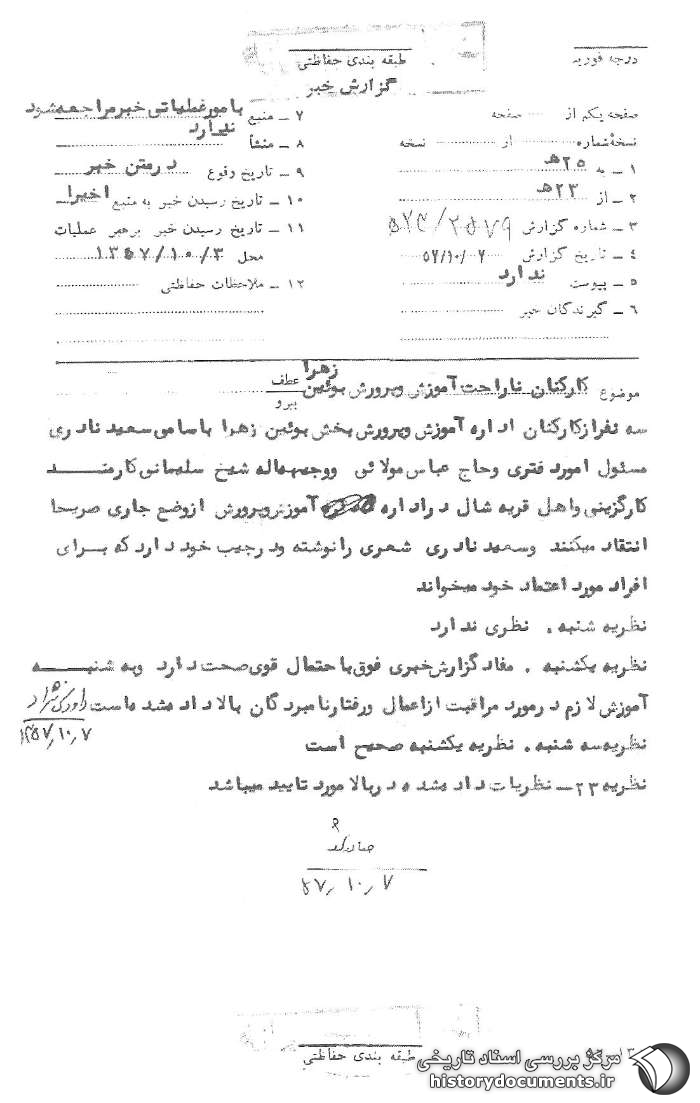 درجه فوریت
طبقه بندی حفاظتی
گزارش خبر
صفحه یکم از ........ صفحه
نسخهٔ شماره ........ از ........ نسخه
۱ ـ به ۲۵ هـ
۲ ـ از ۲۳ هـ
۳ ـ شماره گزارش
۴ ـ تاریخ گزارش ۵۷/۱۰/۰۶
۵ ـ پیوست ندارد
۶ ـ گیرندگان خبر
۷ ـ منبع بامورعملیاتی خبرمراجعه شود
۸ ـ منشأ ندارد
۹ ـ تاریخ وقوع درمتن خبر
۱۰ ـ تاریخ رسیدن خبر به منبع اخیرا
۱۱ ـ تاریخ رسیدن خبر برهبر عملیات
محل ۱۳۵۷/۱۰/۳
۱۲ ـ ملاحظات حفاظتی
موضوع کارکنان ناراحت آموزش وپرورش بوئین زهرا
عطف
پیرو
سه نفرازکارکنان اداره آموزش وپرورش بخش بوئین زهرا باسامی سعید نادری
مسئول امورد فتری وحاج عباس مولائی ووجیهاله شیخ سلیمانی کارمند
کارگزینی واهل قریه شال دراداره آموزش وپرورش ازوضع جاری صریحا
انتقاد میکنند وسعید نادری شعری رانوشته ودرجیب خود دارد که برای
افراد مورد اعتماد خود میخواند
نظریه شنبه . نظری ندارد
نظریه یکشنبه . مفاد گزارش خبری فوق باحتمال قوی صحت دارد وبه شنبه
آموزش لازم درمورد مراقبت ازاعمال ورفتارنامبردگان بالا داده شده است
۱۳۵۷٫۱۰٫۷
نظریه سه شنبه . نظریه یکشنبه صحیح است
نظریه ۲۳ ـ نظریات داده شده دربالا مورد تایید میباشد
۵۷٫۱۰٫۷
طبقه بندی حفاظتی
مرکز بررسی اسناد تاریخی
historydocuments.ir